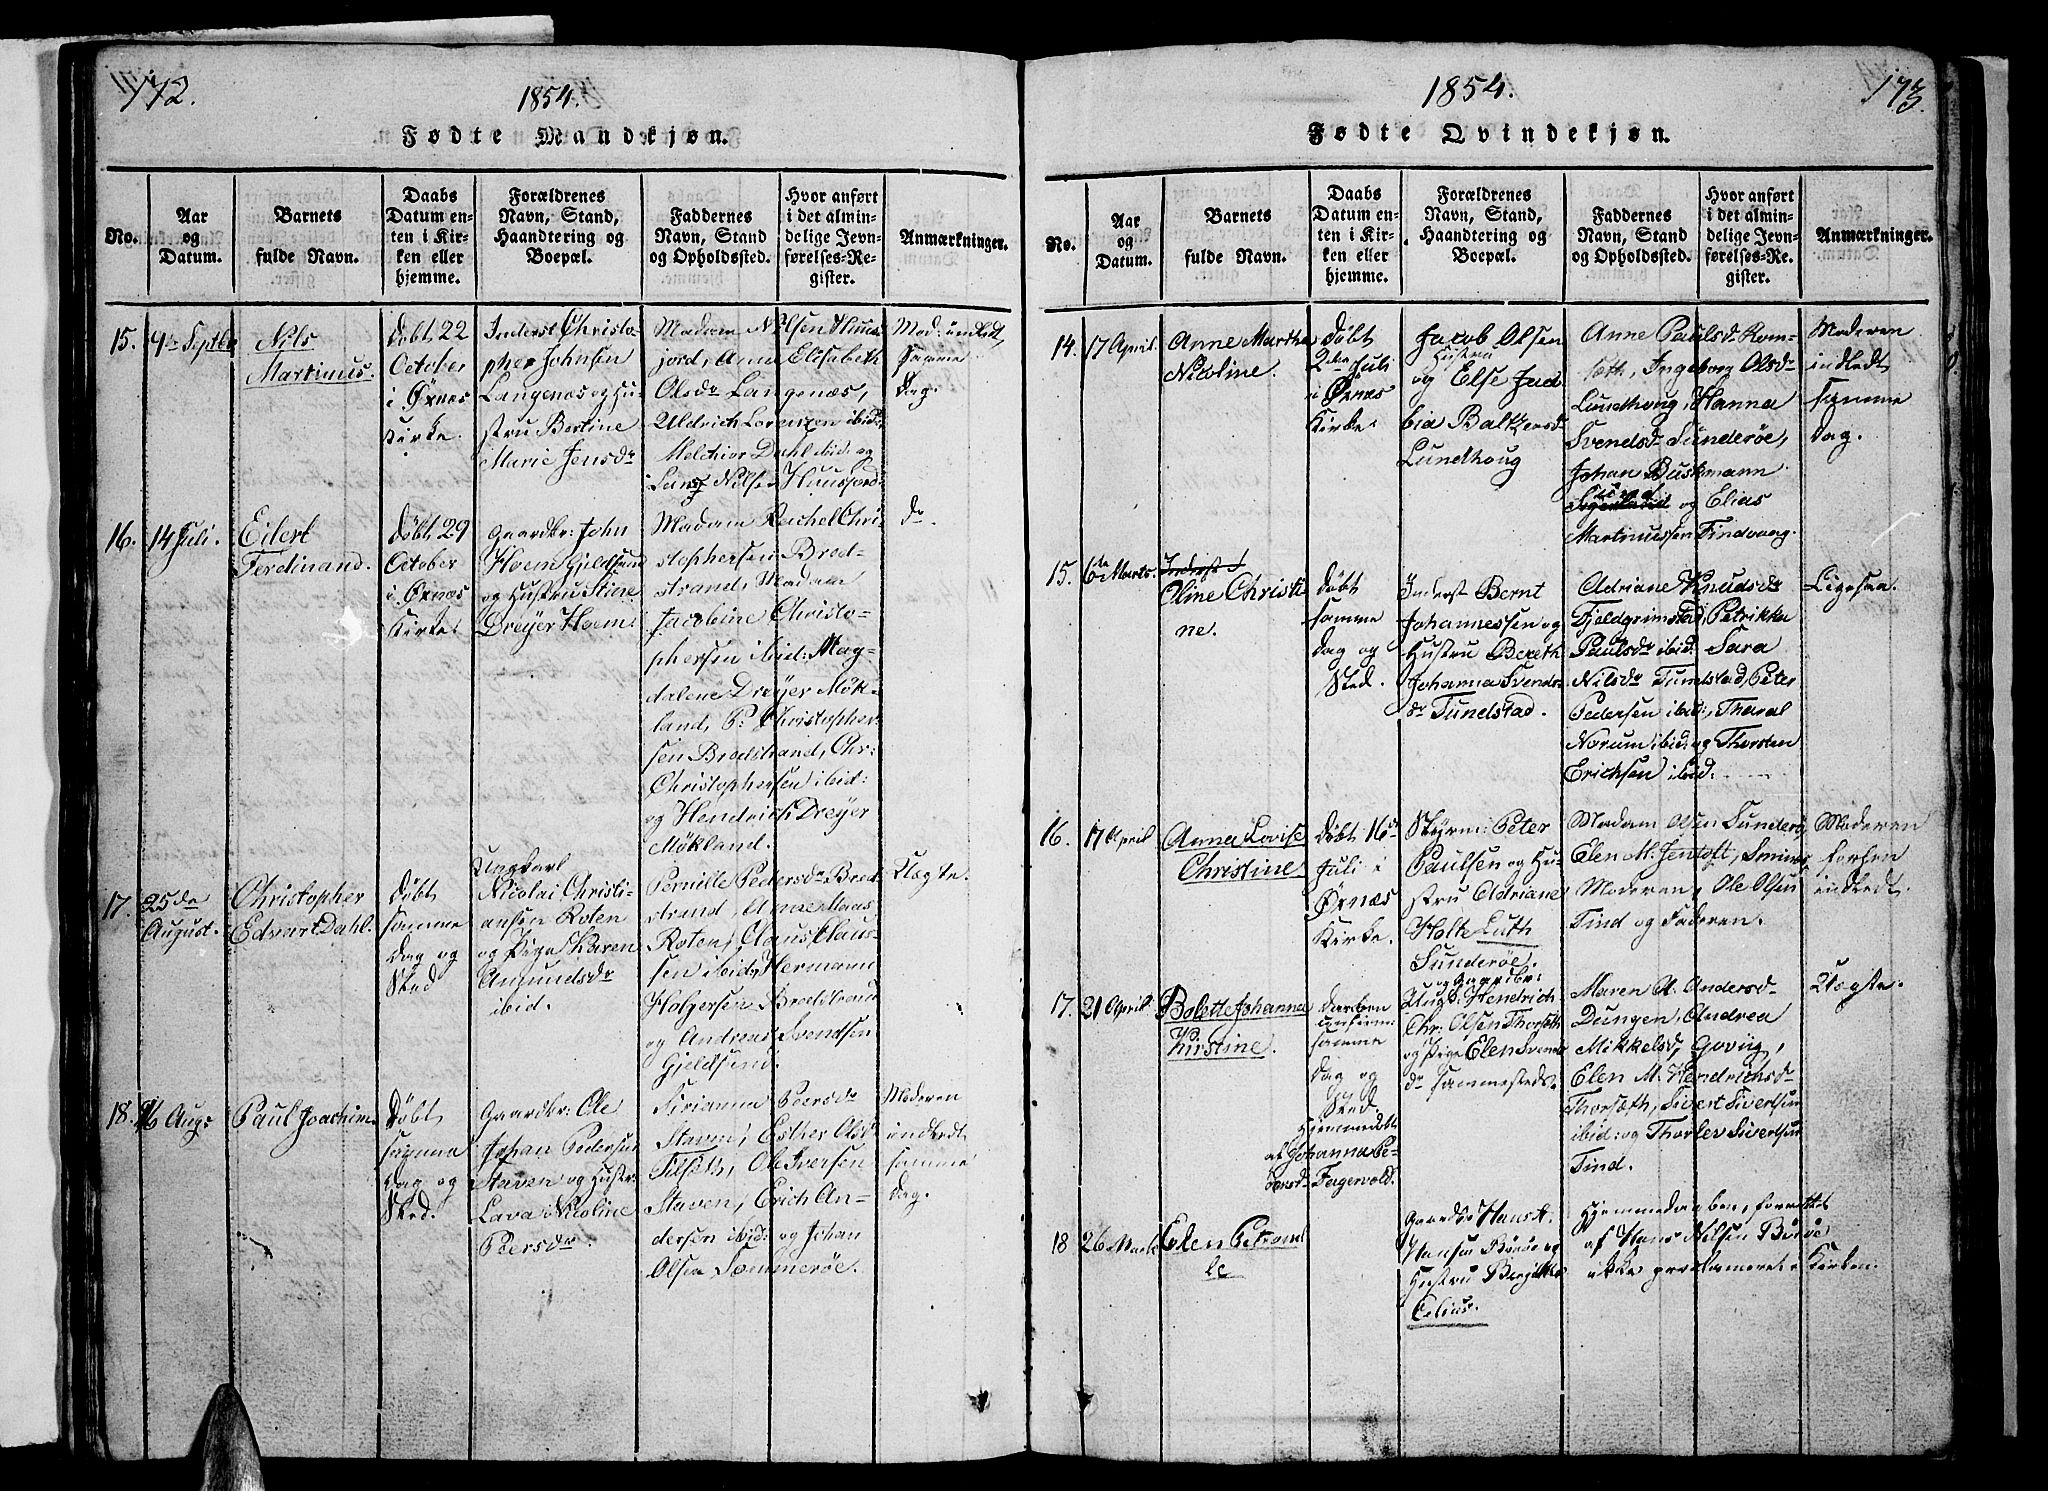 172.
1854.
Fødte Mandkjøn.
No.
Aar
og
Datum.
Barnets
fulde Navn.
Daabs
Datum en-
ten i Kir-
ken eller
hjemme.
Forældrenes
Navn, Stand,
Haandtering og
Boepæl.
Faddernes
Navn, Stand
og Opholdssted.
Hvor anført
i det almin-
delige Jevn-
førelses-Re-
gister.
Anmærkninger.
15.
9de Septbr
Nils
Martinus.
Døbt 22
October
i Øxnes
Kirke.
Inderst Christo-
pher Johnsen
Langenæs og Hu-
stru Bertine
Marie Jensdr
Madam Nilsen Huus-
fjord, Anne Elisabeth
Olsdr Langenæs,
Aldrich Lorenzen ibid:
Melchior Dahl ibid: og
Lars Nilsen Huusfjord
Mod: indledt
samme
Dag.
16.
14 Juli.
Eilert
Ferdinand.
Døbt 29
October
i Øxnes
Kirke.
Gaardbr: John
Hoem Gjeldsund
og Hustru Stine
Dreyer Hoem.
Madam Rachel Chri-
stophersen Bred-
strand, Madam
Jacobine Christo-
phersen ibid: Mag-
dalene Dreyer Møk-
land, P. Christopher-
sen Bredstrand, Chr:
Christophersen ibid:
og Hendrich Dreyer
Møkland.
do
17.
25de
August.
Christopher
Edvart Dahl.
Døbt
samme
Dag og
Sted
Ungkarl
Nicolai Christi-
ansen Roten
og Pige Karen
Amundsdr
ibid.
Pernille Pedersdr Bred-
strand, Anne Maas
Roten, Claus Claus-
sen ibid, Hermann
Holgersen Bredstrand
og Andreas Svendsen
Gjeldsund.
Uægte.
18.
16 Aug:
Paul Joachim
Døbt
samme
Dag og
Sted.
Gaardbr: Ole
Johan Pedersen
Staven og Hustr:
Lava Nicoline
Peersdr.
Sirianna Peersdr
Staven, Esther Olsdr
Tilseth, Ole Iversen
Staven, Erich An-
dersen ibid: og Johan
Olsen Sommerøe.
Moderen
indledt
samme
Dag.
173.
1854.
Fødte Qvindekjøn.
No.
Aar
og
Datum.
Barnets
fulde Navn.
Daabs
Datum en-
ten i Kir-
ken eller
hjemme.
Forældrenes
Navn, Stand,
Haandtering og
Boepæl.
Faddernes
Navn, Stand
og Opholdssted.
Hvor anført
i det almin-
delige Jevn-
førelses-Re-
gister.
Anmærkninger.
14.
17 April.
Anne Martha
Nicoline.
Døbt
2den Juli
i Øxnes
Kirke.
Jacob Olsen
Hustru
og Else Jac
bia Baltzersd
Lundhoug
Anne Paulsdr Rom-
sæth, Ingeborg Olsdr
Lundhoug, Hanna
Svendsdr Sunderøe,
Johan Buskmann
og Elias
Martinussen Tindvaag.
Moderen
indledt
samme
Dag.
15.
6te Marts.
Oline Christi-
ne.
Døbt
samme
Dag og
Sted.
Inderst Bernt
Johannessen og
Hustru Bereth
Johanna Svends-
dr Tundstad.
Adriane Knudsdr
Fjeldgrimstad, Petrikka
Paulsdr ibid: Sara
Nilsdr Tundstad, Peter
Pedersen ibid:, Tharal
Norum ibid: og Thorsten
Erichsen ibid.
Ligesaa.
16.
17 April
Anna Lovise
Christine.
Døbt 16de
Juli i
Øxnes
Kirke.
Styrm: Peter
Paulsen og Hu-
stru Adriane
Holte Luth
Sunderøe.
Madam Olsen Sunderø
Elen M. Jentoft, Smines
Moderen, Ole Olsen
Tind og Faderen.
Moderen
forhen
indledt.
17.
21 April
Bolette Johanna
Kirstine.
Daaben
confirm:
samme
Dag og
Sted
Hjemmedøbt
af Johanna Pe-
dersdr Fagervold.
og Gaardbr:
Ungk. Hendrich
Chr: Olsen Thorseth
og Pige Elen Svends-
dr sammesteds.
Maren A. Andersdr
Dungen, Andrea
Mikkelsd, Goving,
Elen M. Hendrichsdr
Thorsæth, Sivert Sivertsen
ibid: og Thorlev Sivertsen
Tind.
Uægte.
18
26 Marts
Elen Petronel
le
Gaardbr Hans A.
Hansen Børøe og
Hustru Birgitte
Celius.
Hjemmedaaben, forrettet
af Hans Nilsen Børøe
ikke proclameret i Kirken.